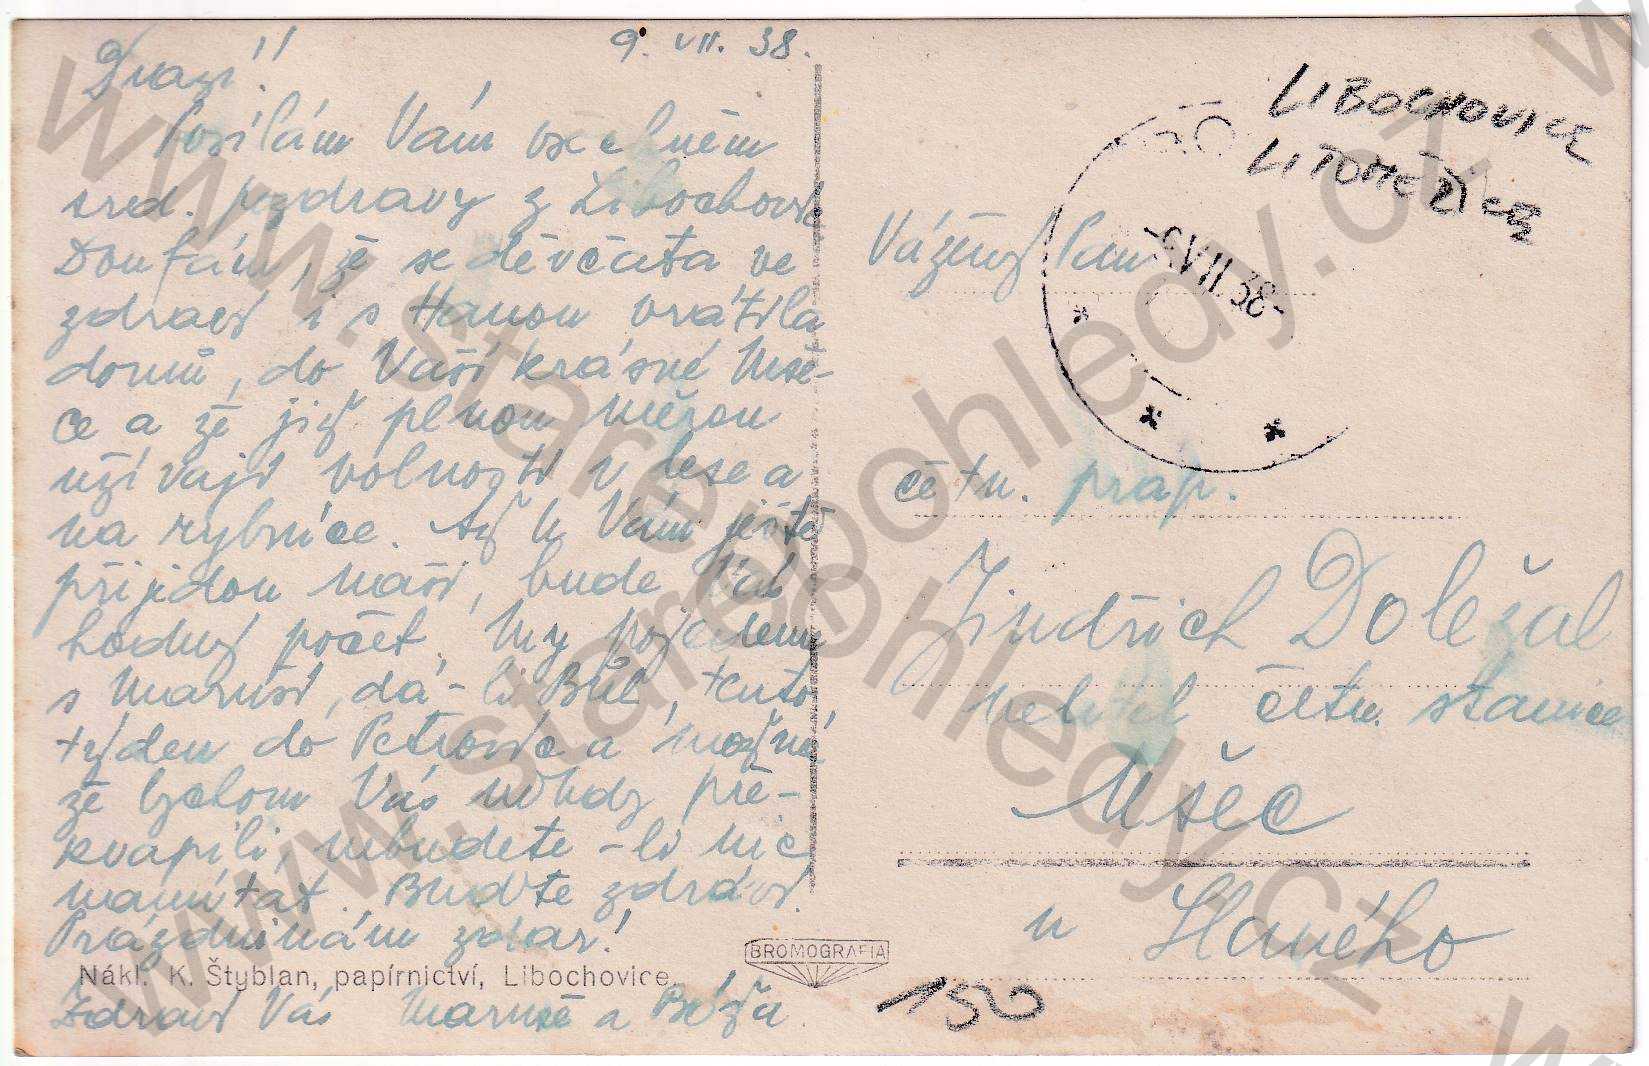 9. VII. 38.
Drazí!
Posílám Vám všechněm
srd. pozdravy z Libochovic
Doufám, že se děvčata ve
zdraví i s Hanou vrátila
domů, do Vaší krásné Mše-
ce a že již plnou měrou
užívají volnosti v lese a
na rybníce. Až k Vám ještě
přijdou naši, bude Vás
hodný počet. My pojedem
s Maruší, dá-li Bůh, tento
týden do Petrovic a možná
že bychom Vás někdy pře-
kvapili, nebudete-li nic
namítat. Buďte zdrávi.
Prázdninám zdar!
Zdraví Vás Maruše a Bóža
Nákl. K. Štyblan, papírnictví, Libochovice.
BROMOGRAFIA
LIBOCHOVICE
LITOMĚŘICE
VII 38
Vážený Pan
četn. prap.
Jindřich Doležal
velitel četn. stanice
Mšec
u Slaného
150
www.starepohledy.cz
www.starepohledy.cz